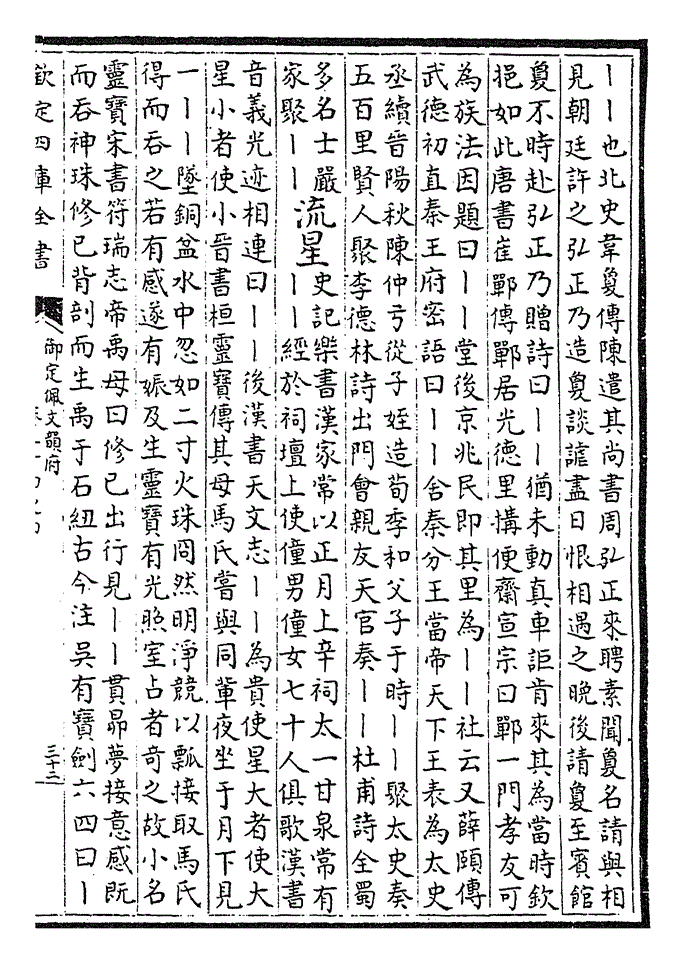 ｜｜也北史韋敻傳陳遣其尚書周弘正來聘素聞敻名請與相
見朝廷許之弘正乃造敻談謔盡日恨相遇之晚後請敻至賓館
敻不時赴弘正乃贈詩曰｜｜猶未動真車詎肯來其為當時欽
挹如此唐書崔鄲傳鄲居光德里搆便齋宣宗曰鄲一門孝友可
為族法因題曰｜｜堂後京兆民即其里為｜｜社云又薛頤傳
武德初直秦王府密語曰｜｜舍秦分王當帝天下王表為太史
丞續晉陽秋陳仲弓從子姪造荀季和父子于時｜｜聚太史奏
五百里賢人聚李德林詩出門會親友天官奏｜｜杜甫詩全蜀
多名士嚴
家聚｜｜
流星
史記樂書漢家常以正月上辛祠太一甘泉常有
｜｜經於祠壇上使僮男僮女七十人俱歌漢書
音義光迹相連曰｜｜後漢書天文志｜｜為貴使星大者使大
星小者使小晉書桓靈寶傳其母馬氏嘗與同輩夜坐于月下見
一｜｜墜銅盆水中忽如二寸火珠冏然明淨競以瓢接取馬氏
得而吞之若有感遂有娠及生靈寶有光照室占者奇之故小名
靈寶宋書符瑞志帝禹母曰修已出行見｜｜貫昴夢接意感既
而吞神珠修已背剖而生禹于石紐古今注吳有寶劍六四曰｜
欽定四庫全書
御定佩文韻府
三十二